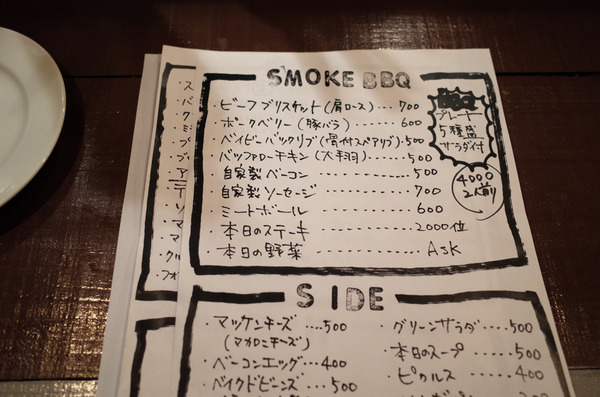 SMOKE BBQ
・ビーフブリスケット(肩ロース)…700
・ポークベリー(豚バラ)………600
・ベイビーバックリブ(骨付スペアリブ)・500
・バッファローチキン(大手羽)………500
・自家製ベーコン………500
・自家製ソーセージ………700
・ミートボール………600
・本日のステーキ………2000位
・本日の野菜………ASK
BBQ
プレート
5種盛
サラダ付
4000
2人前
SIDE
・マッケンチーズ…500
(マカロニチーズ)
・ベーコンエッグ…400
・ベイクドビーンズ…500
・グリーンサラダ…500
・本日のスープ…500
・ピクルス…400